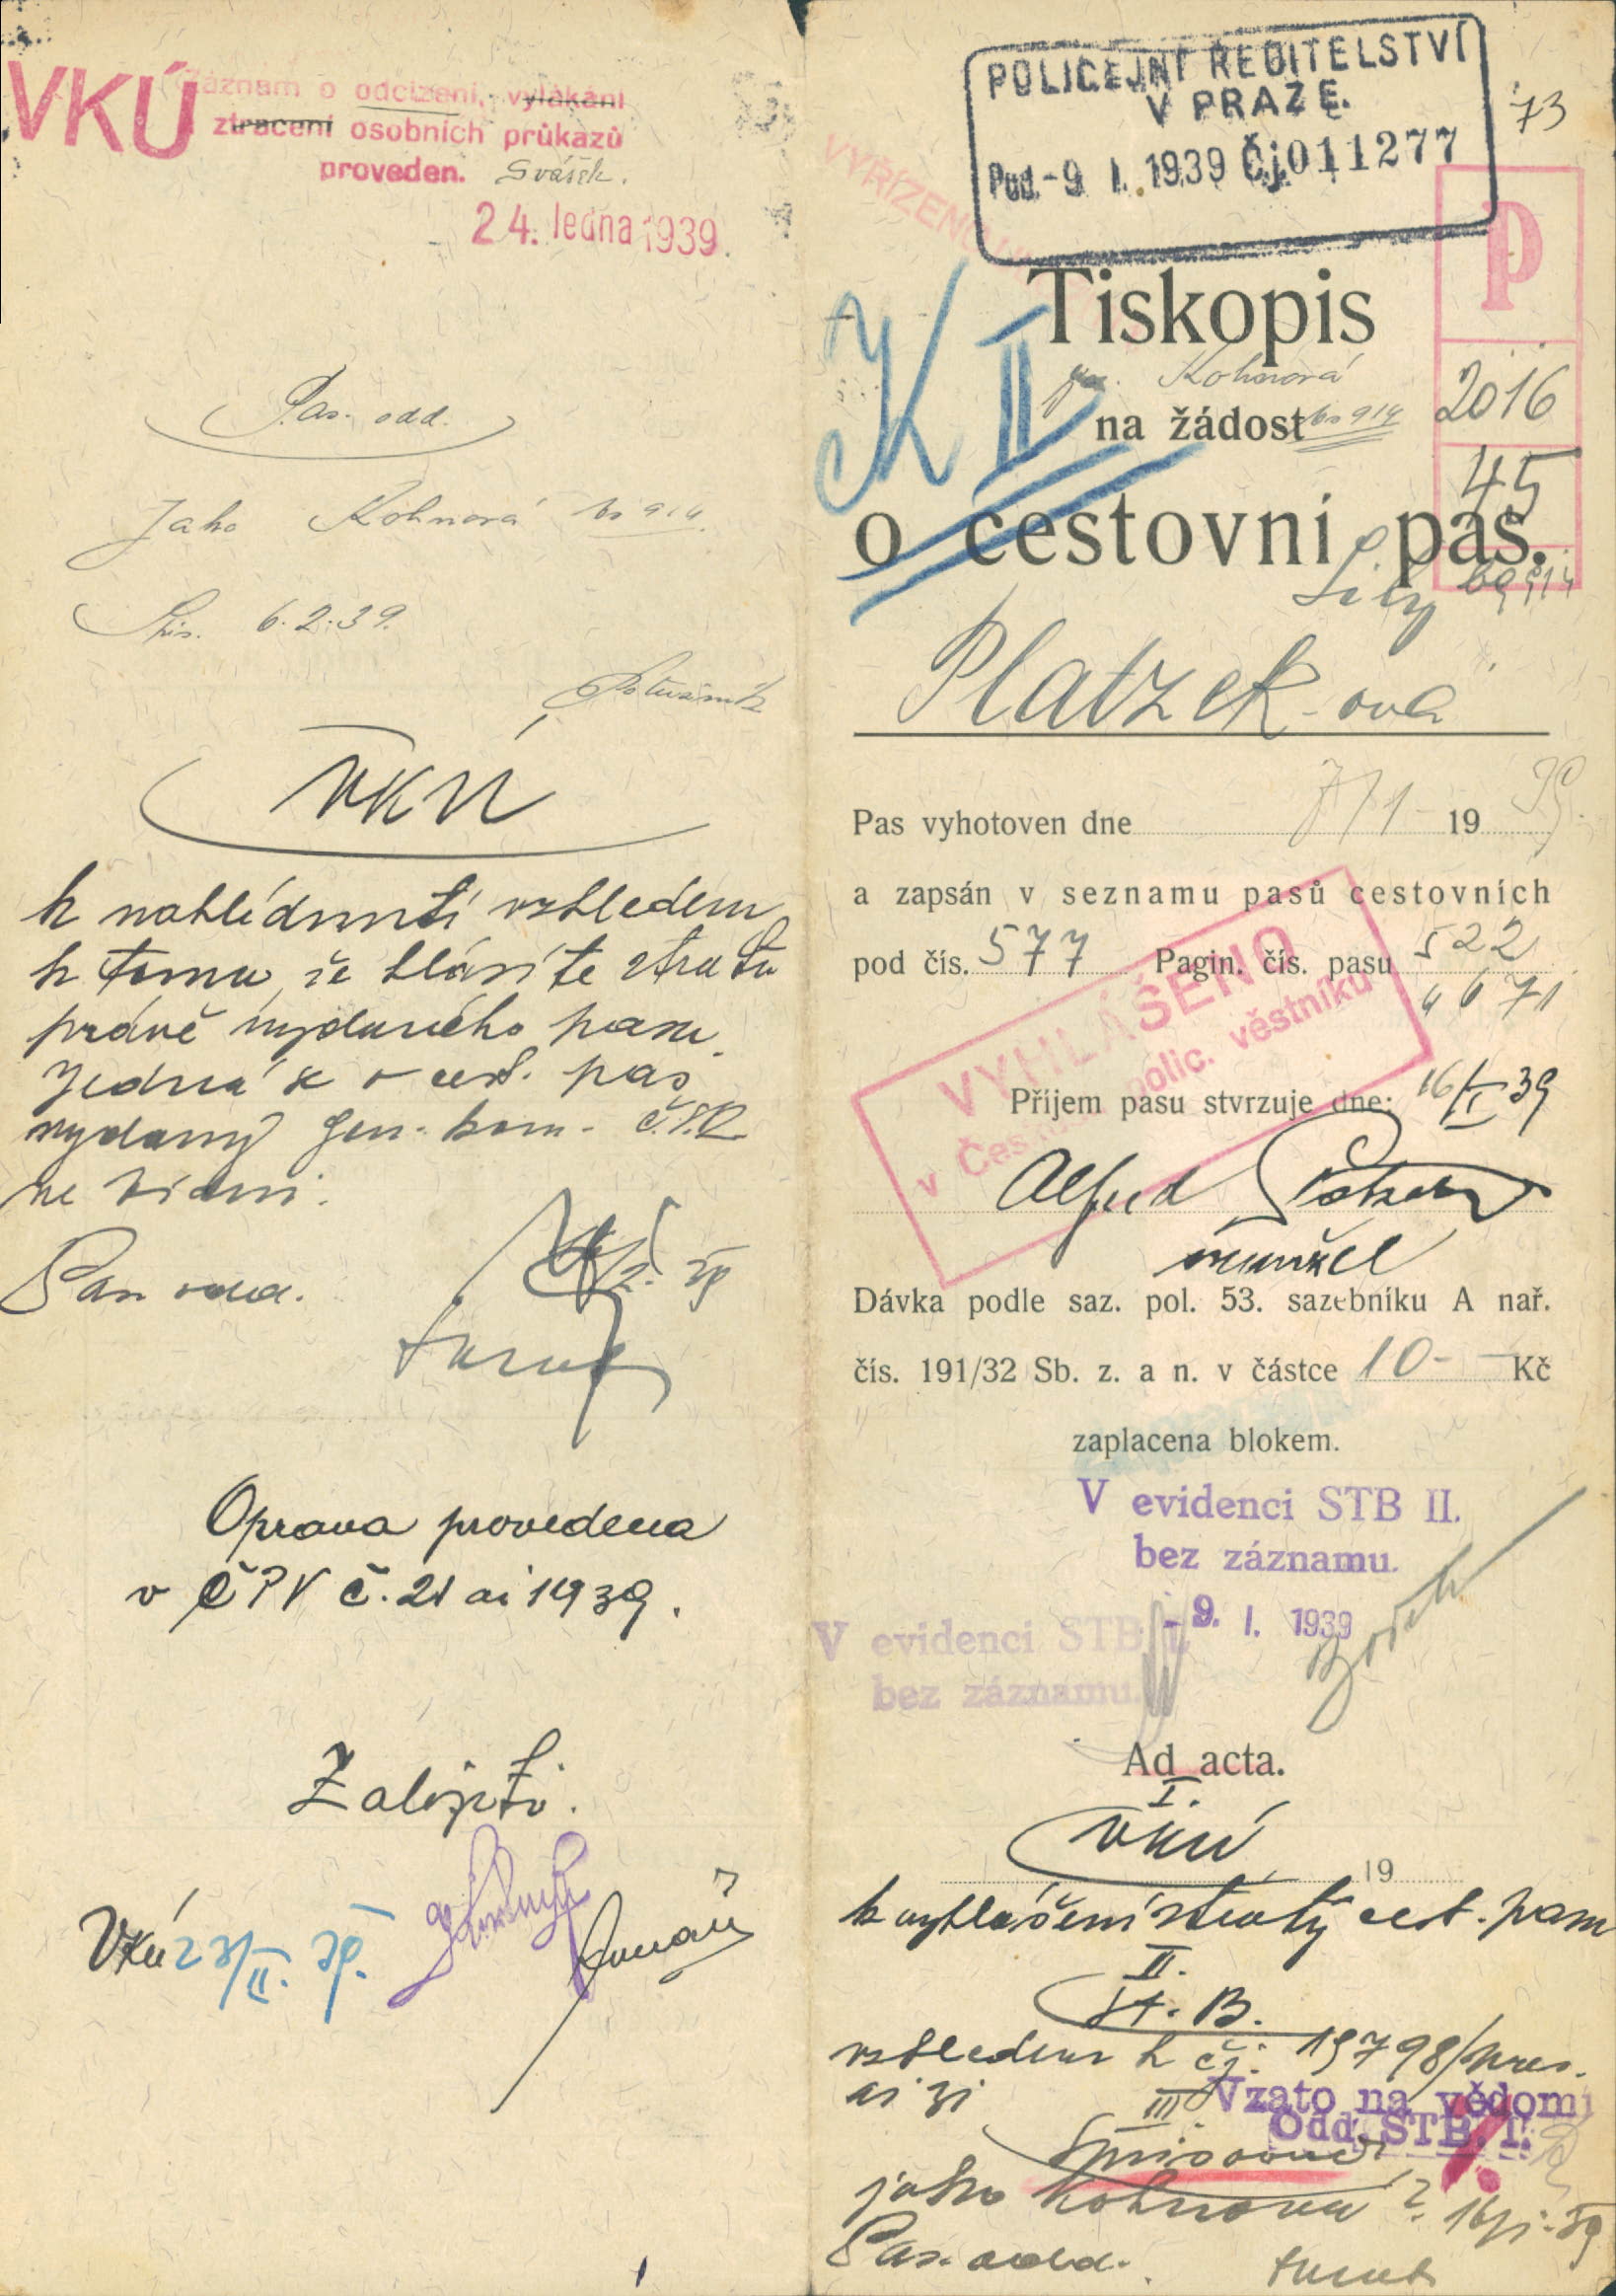 VKÚ
Záznam o odcizení, vylákání
ztracení osobních průkazů
proveden. Svášek.
24. ledna 1939.
Pas. odd.
Jako Kohnová 914.
Spis. 6.2.39.
VKÚ
k nahlédnutí vzhledem
k tomu, že hlásíte ztrátu
právě vydaného pasu.
Jedná se o cest. pas
vydaný gen. kons. Č.S.R.
ve Vídni.
Pas. odd.
Oprava provedena
v ČPV č. 21 ai 1939.
Založiti.
VKú 23/II. 39.
POLICEJNÍ ŘEDITELSTVÍ
V PRAZE.
Pod. -9 I. 1939 Čj. 011277
73
VYŘÍZENO
P
2016
45
K II
Tiskopis
Kohnová
na žádost 914
o cestovní pas.
Lily
Platzek-ová
Pas vyhotoven dne 7/1 1939.
a zapsán v seznamu pasů cestovních
pod čís. 577 Pagin. čís. pasu 522
4671
VYHLÁŠENO
v Čes. polic. věstníku
Příjem pasu stvrzuje dne: 16/I 39
Alfred Platzek
manžel
Dávka podle saz. pol. 53. sazebníku A nař.
čís. 191/32 Sb. z. a n. v částce 10- Kč
zaplacena blokem.
V evidenci STB II.
bez záznamu.
-9. I. 1939
V evidenci STB I.
bez záznamu.
Ad acta.
I.
VKÚ
19
k vyhlášení ztráty cest. pasu
II.
St. B.
vzhledem k čj. 19798/pres.
ai 31
III.
Vzato na vědomí
Odd. STB. I.
Spisovně
jako Kohnová 16/1. 39
Pas. odd.